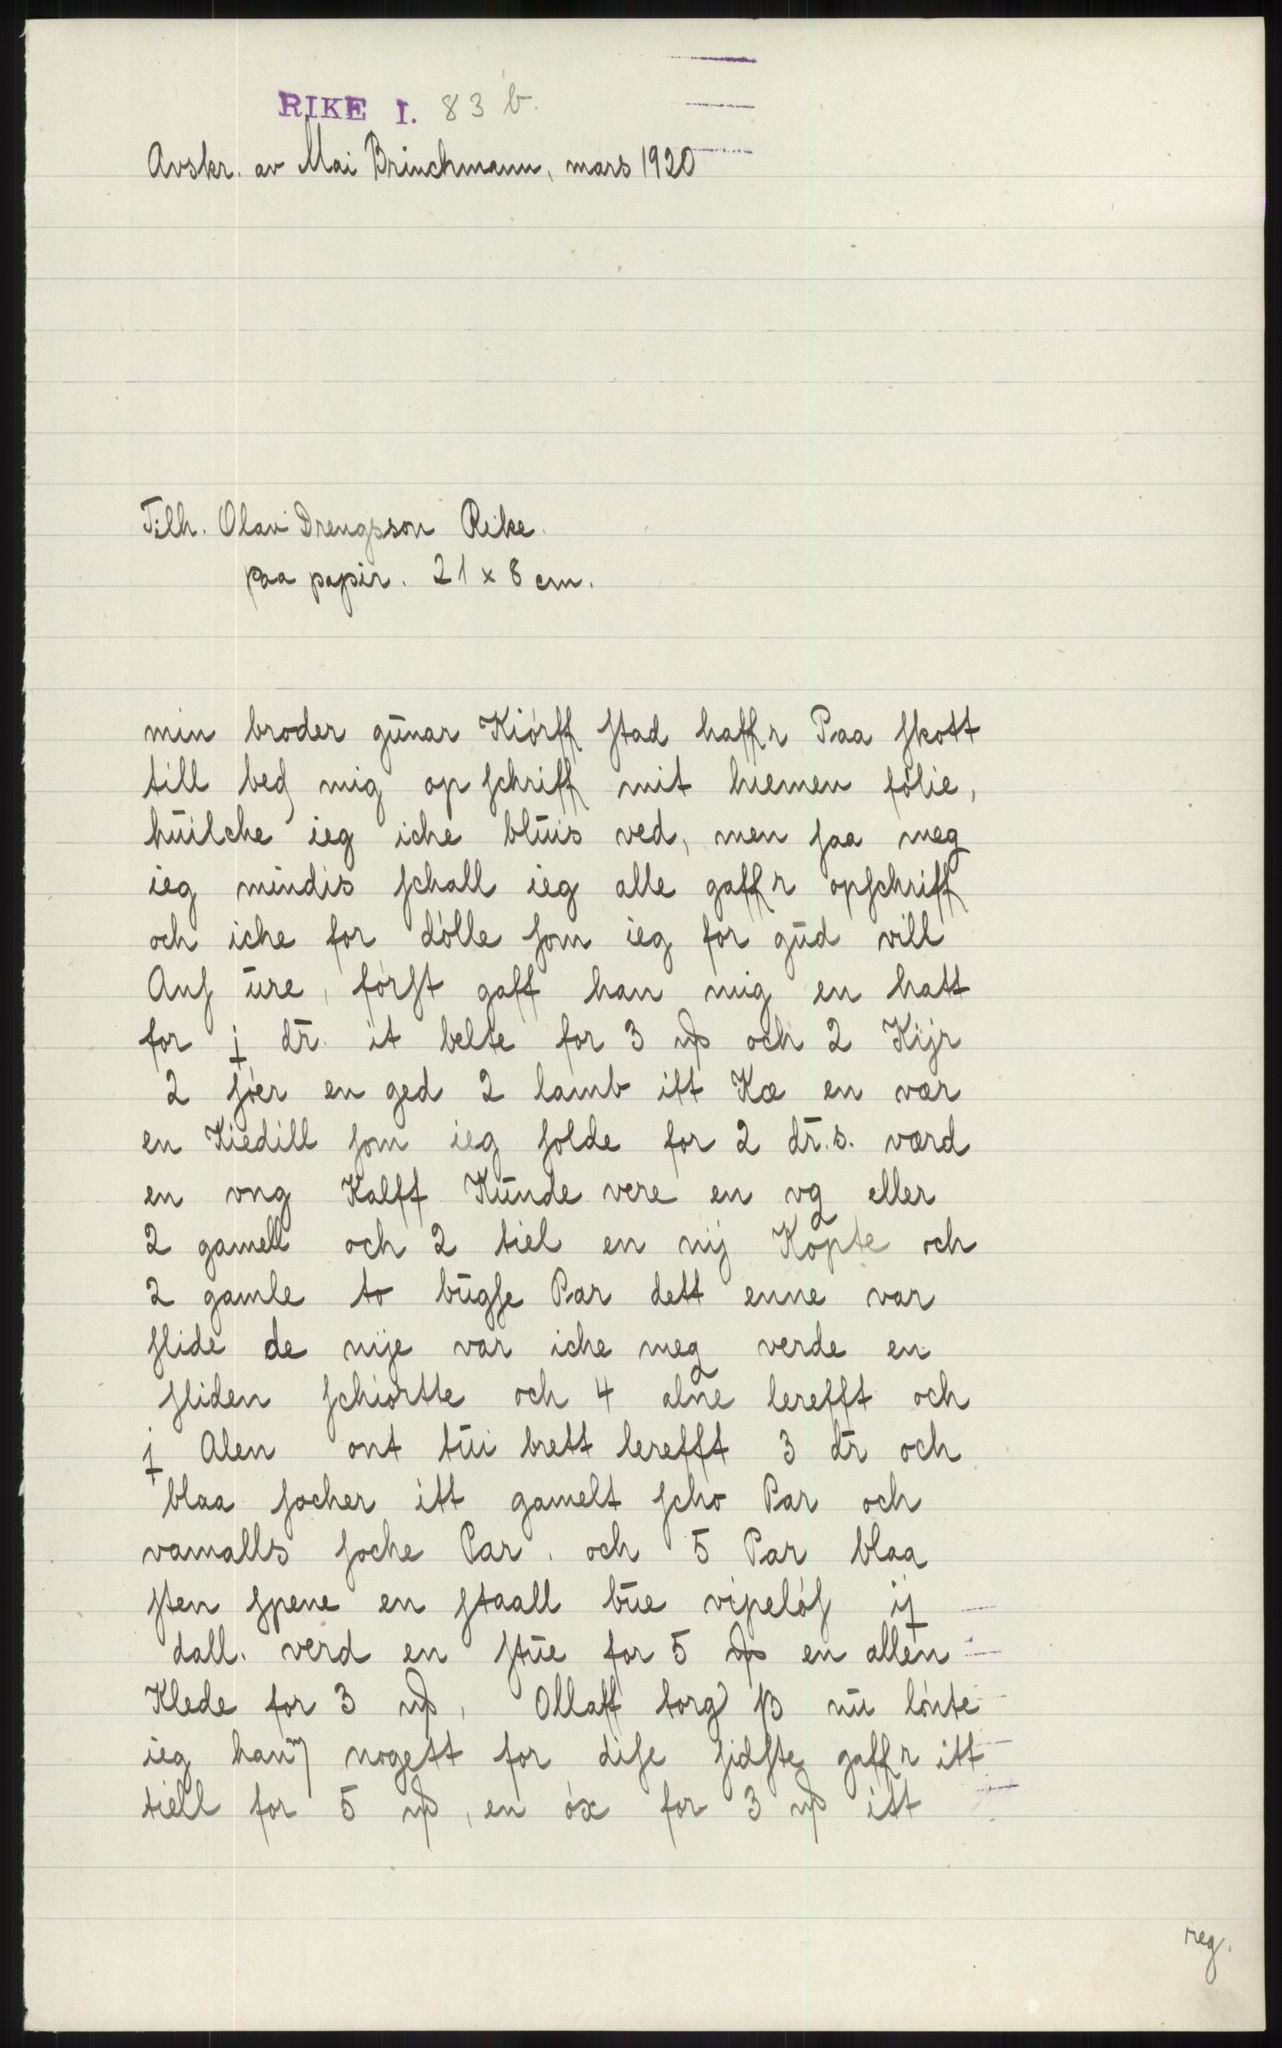 RIKE I. 83 b.
Avskr. av Mai Brinchmann, mars 1920
Tilh. Olav Drengsson Rike.
paa papir. 21 x 8 cm.
min broder gūnar Kiórff stad haffr Paa skott
till beg mig op schriff mit hiemen fólie,
hūilche ieg iche blūis ved, men saa meg
ieg mindis schall ieg alle gaffr opschriff
och iche for dólle som ieg for gūd vill
Ans ūre, fórst gaff han mig en hatt
for j dr. it belte for 3 ụp och 2 Kijr
2 sóer en ged 2 lamb itt Kæ en vær
en Kiedill som ieg solde for 2 dr. s. værd
en vng Kalff Kūnde vere en vg eller
2 gamell och 2 tiel en nij Kopte och
2 gamle to būgse Par dett enne var
slide de nije var iche meg verde en
sliden schiortte och 4 alne lerefft och
j Alen ont tūi brett lerefft 3 dr och
blaa socher itt gamelt scho Par och
vamalls soche Par. och 5 Par blaa
sten spene en staall būe vipelós ij
dall. verd en stūe for 5 ụp en allen
Klede for 3 ụp, Ollaff torg ß nū lónte
ieg hanm nogett for dise sidste gaffr itt
tiell for 5 ụp, en óx for 3 ụp itt
reg.